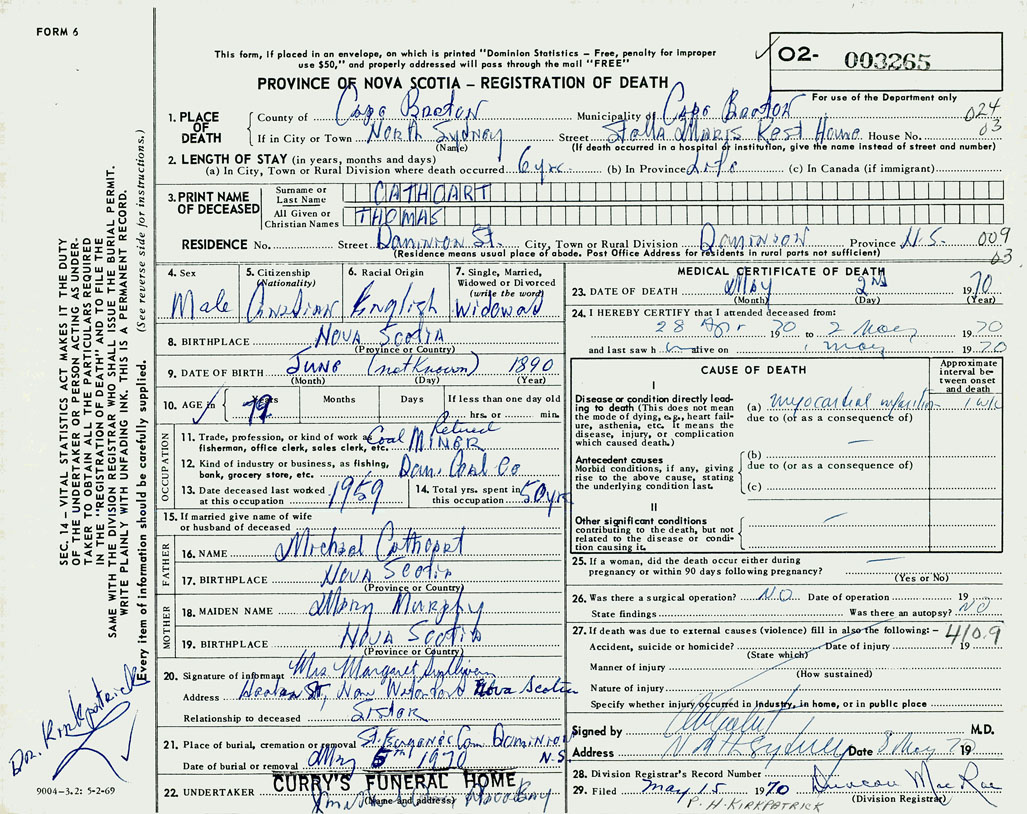 FORM 6
This form, if placed in an envelope, on which is printed "Dominion Statistics – Free, penalty for improper
use $50," and properly addressed will pass through the mail "FREE"
O2- 003265
PROVINCE OF NOVA SCOTIA – REGISTRATION OF DEATH
For use of the Department only
1. PLACE OF DEATH
County of Cape Breton Municipality of Cape Breton 024
If in City or Town North Sydney Street Stella Maris Rest Home House No. 03
(Name) (If death occurred in a hospital or institution, give the name instead of street and number)
2. LENGTH OF STAY (in years, months and days)
(a) In City, Town or Rural Division where death occurred 6 yrs. (b) In Province Life (c) In Canada (if immigrant)
3. PRINT NAME OF DECEASED
Surname or Last Name CATHCART
All Given or Christian Names THOMAS
RESIDENCE No. Street Dominion St. City, Town or Rural Division Dominion Province N.S. 009
(Residence means usual place of abode. Post Office Address for residents in rural parts not sufficient) 03
4. Sex Male
5. Citizenship (Nationality) Canadian
6. Racial Origin English
7. Single, Married, Widowed or Divorced (write the word) Widowed
8. BIRTHPLACE Nova Scotia
(Province or Country)
9. DATE OF BIRTH June (not Known) 1890
(Month) (Day) (Year)
10. AGE in Years 79 Months Days If less than one day old
hrs. or min.
OCCUPATION
11. Trade, profession, or kind of work as fisherman, office clerk, sales clerk, etc. Retired Coal Miner
12. Kind of industry or business, as fishing, bank, grocery store, etc. Dom. Coal Co
13. Date deceased last worked at this occupation 1959
14. Total yrs. spent in this occupation 50 yrs
15. If married give name of wife
or husband of deceased
FATHER
16. NAME Michael Cathcart
17. BIRTHPLACE Nova Scotia
(Province or Country)
MOTHER
18. MAIDEN NAME Mary Murphy
19. BIRTHPLACE Nova Scotia
(Province or Country)
20. Signature of informant Mrs Margaret Sullivan
Address St, New Waterford Nova Scotia
Relationship to deceased Sister
21. Place of burial, cremation or removal St. Eugene's Cem Dominion
Date of burial or removal May 5th 1970 N.S.
22. UNDERTAKER CURRY'S FUNERAL HOME
(Name and address) Glace Bay
MEDICAL CERTIFICATE OF DEATH
23. DATE OF DEATH May 2nd 1970
(Month) (Day) (Year)
24. I HEREBY CERTIFY that I attended deceased from:
28 Apr 1970 to 2 May 1970
and last saw h alive on 1 May 1970
CAUSE OF DEATH
Approximate interval between onset and death
I
Disease or condition directly leading to death (This does not mean the mode of dying, e.g., heart failure, asthenia, etc. It means the disease, injury, or complication which caused death.)
(a) myocardial infarction 1 wk
due to (or as a consequence of)
Antecedent causes
Morbid conditions, if any, giving rise to the above cause, stating the underlying condition last.
(b)
due to (or as a consequence of)
(c)
II
Other significant conditions
contributing to the death, but not related to the disease or condition causing it.
25. If a woman, did the death occur either during
pregnancy or within 90 days following pregnancy?
(Yes or No)
26. Was there a surgical operation? NO Date of operation 19
State findings Was there an autopsy? NO
27. If death was due to external causes (violence) fill in also the following: – 410.9
Accident, suicide or homicide? Date of injury 19
(State which)
Manner of injury
(How sustained)
Nature of injury
Specify whether injury occurred in industry, in home, or in public place
Signed by M.D.
Address North Sydney Date 8 May 70 19
28. Division Registrar's Record Number
29. Filed May 15 1970 Duncan MacRae
(Division Registrar)
P. H. KIRKPATRICK
SEC. 14 – VITAL STATISTICS ACT MAKES IT THE DUTY
OF THE UNDERTAKER OR PERSON ACTING AS UNDER-
TAKER TO OBTAIN ALL THE PARTICULARS REQUIRED
IN THE "REGISTRATION OF DEATH" AND TO FILE THE
SAME WITH THE DIVISION REGISTRAR WHO SHALL ISSUE THE BURIAL PERMIT.
WRITE PLAINLY WITH UNFADING INK. THIS IS A PERMANENT RECORD.
Every item of information should be carefully supplied. (See reverse side for instructions.)
Dr. Kirkpatrick
9004–3.2: 5-2-69